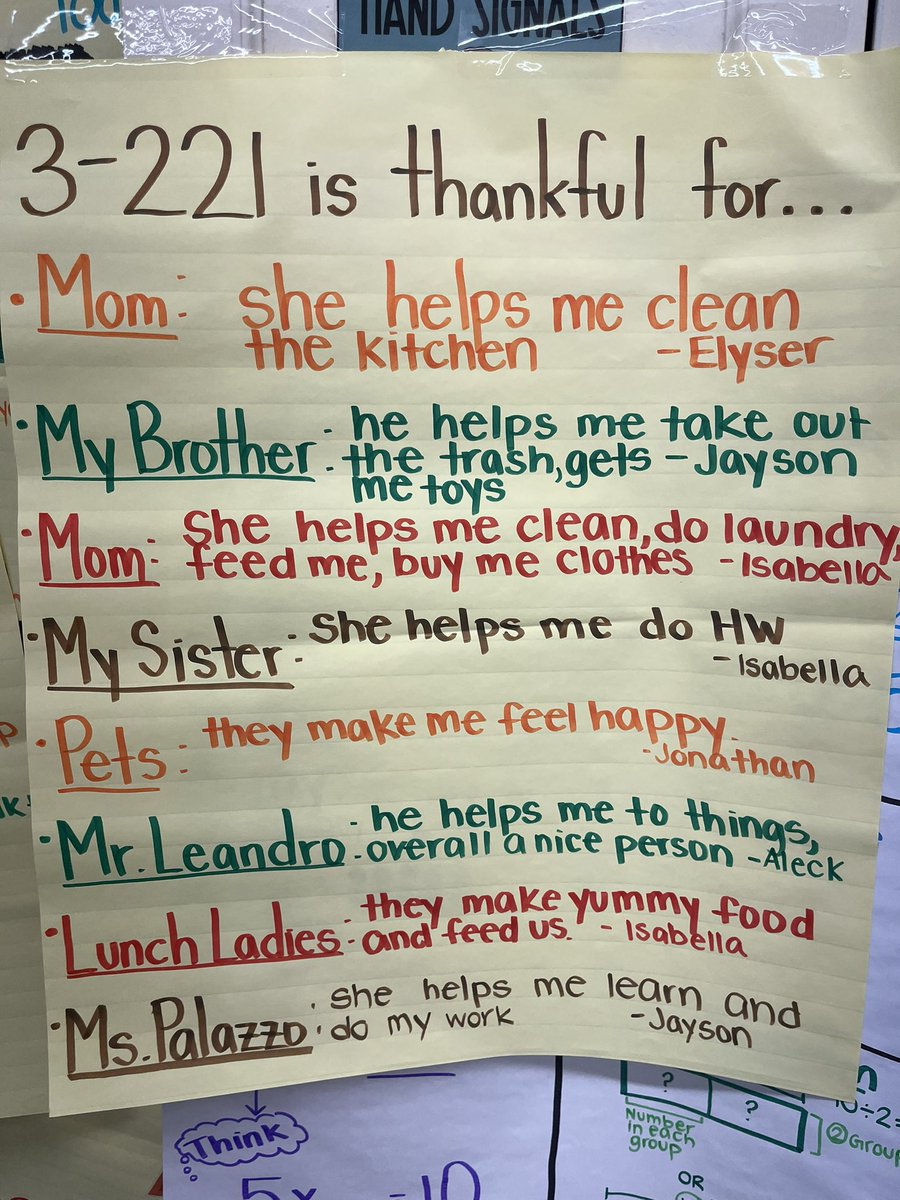 100
HAND SIGNALS
3-221 is thankful for...
• Mom: she helps me clean
the kitchen -Elyser
• My Brother: he helps me take out
the trash, gets -Jayson
me toys
• Mom: She helps me clean, do laundry,
feed me, buy me clothes -Isabella
• My Sister: She helps me do HW
-Isabella
• Pets: they make me feel happy.
-Jonathan
• Mr. Leandro: he helps me to things,
overall a nice person -Aleck
• Lunch Ladies: they make yummy food
and feed us. - Isabella
• Ms. Palazzo: she helps me learn and
do my work -Jayson
Think
5x =10
? ?
Number
in each
group
10÷2=
② Group
OR